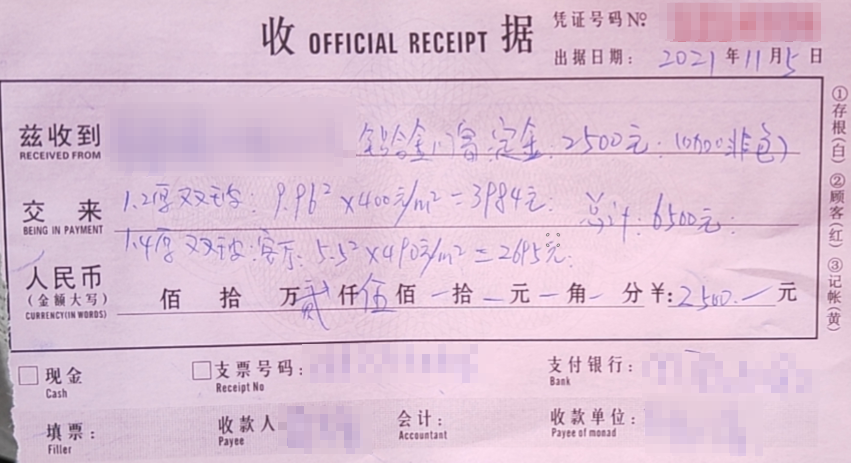 收 OFFICIAL RECEIPT 据
凭证号码No
出据日期: 2021年11月5日
兹收到 铝合金门窗定金:2500元:
RECEIVED FROM
交来 1.2厚双玻: 9.96²×400元/m²=3984元: 总计:6500元:
BEING IN PAYMENT
1.4厚双玻:客厅:5.5²×490元/m²=2695元:
人民币
(金额大写) 佰 拾 万贰仟伍佰一拾一元一角一分¥:2500.一元
CURRENCY(IN WORDS)
现金 支票号码: 支付银行:
Cash Receipt No Bank
填票: 收款人 会计: 收款单位:
Filler Payee Accountant Payee of monad
①存根(白)②顾客(红)③记帐(黄)